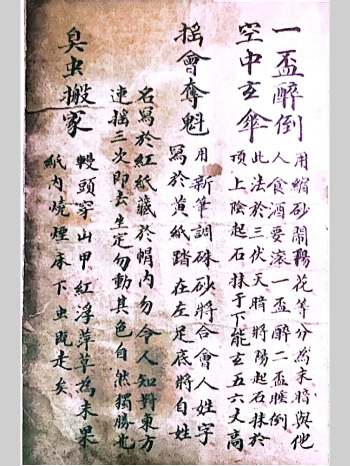 一盃醉倒
用縮砂閙陽花等分為末暗與他
人食酒要滚一盃醉二盃睡倒
空中玄傘
此法於三伏天時將陽起石抹於
頂上陰起石抹于下能玄五六丈高
搖會奪魁
用新筆調硃砂將合會人姓字
寫於黃紙踏在左足底將自姓
名寫於紅紙藏於帽内勿令人知對東方
連搖三次即去生定勿動其色自然獨勝也
臭虫搬家
鞔頭穿山甲紅浮萍草為末果
紙内燒煙床下虫既走矣